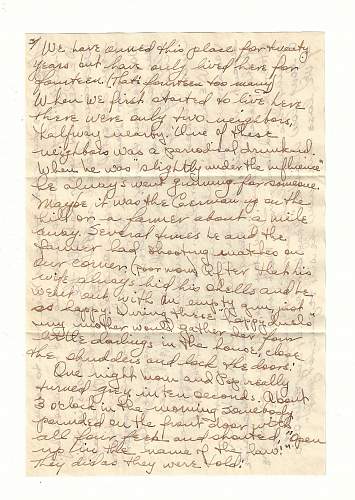 3/ We have owned this place for twenty
years but have only lived here for
fourteen. (Thats fourteen too many)
When we first started to live here
there were only two neighbors,
halfway nearby. One of these
neighbors was a periodical drunkard.
When he was "slightly under the influence"
he always went gunning for someone.
Maybe it was the German up on the
hill or a farmer about a mile
away. Several times he and the
farmer had shooting matches on
our corner. (poor mom) After that his
wife always hid his shells and he
went out with an empty gun just
so happy. During these "happy duels"
my mother would gather her four
little darlings in the house, close
the shudders and lock the doors.
One night mom and Pop really
turned grey in ten seconds. About
3 o'clock in the morning somebody
pounded on the front door with
all four feet and shouted, "Open
up in the name of the law."
They did as they were told.